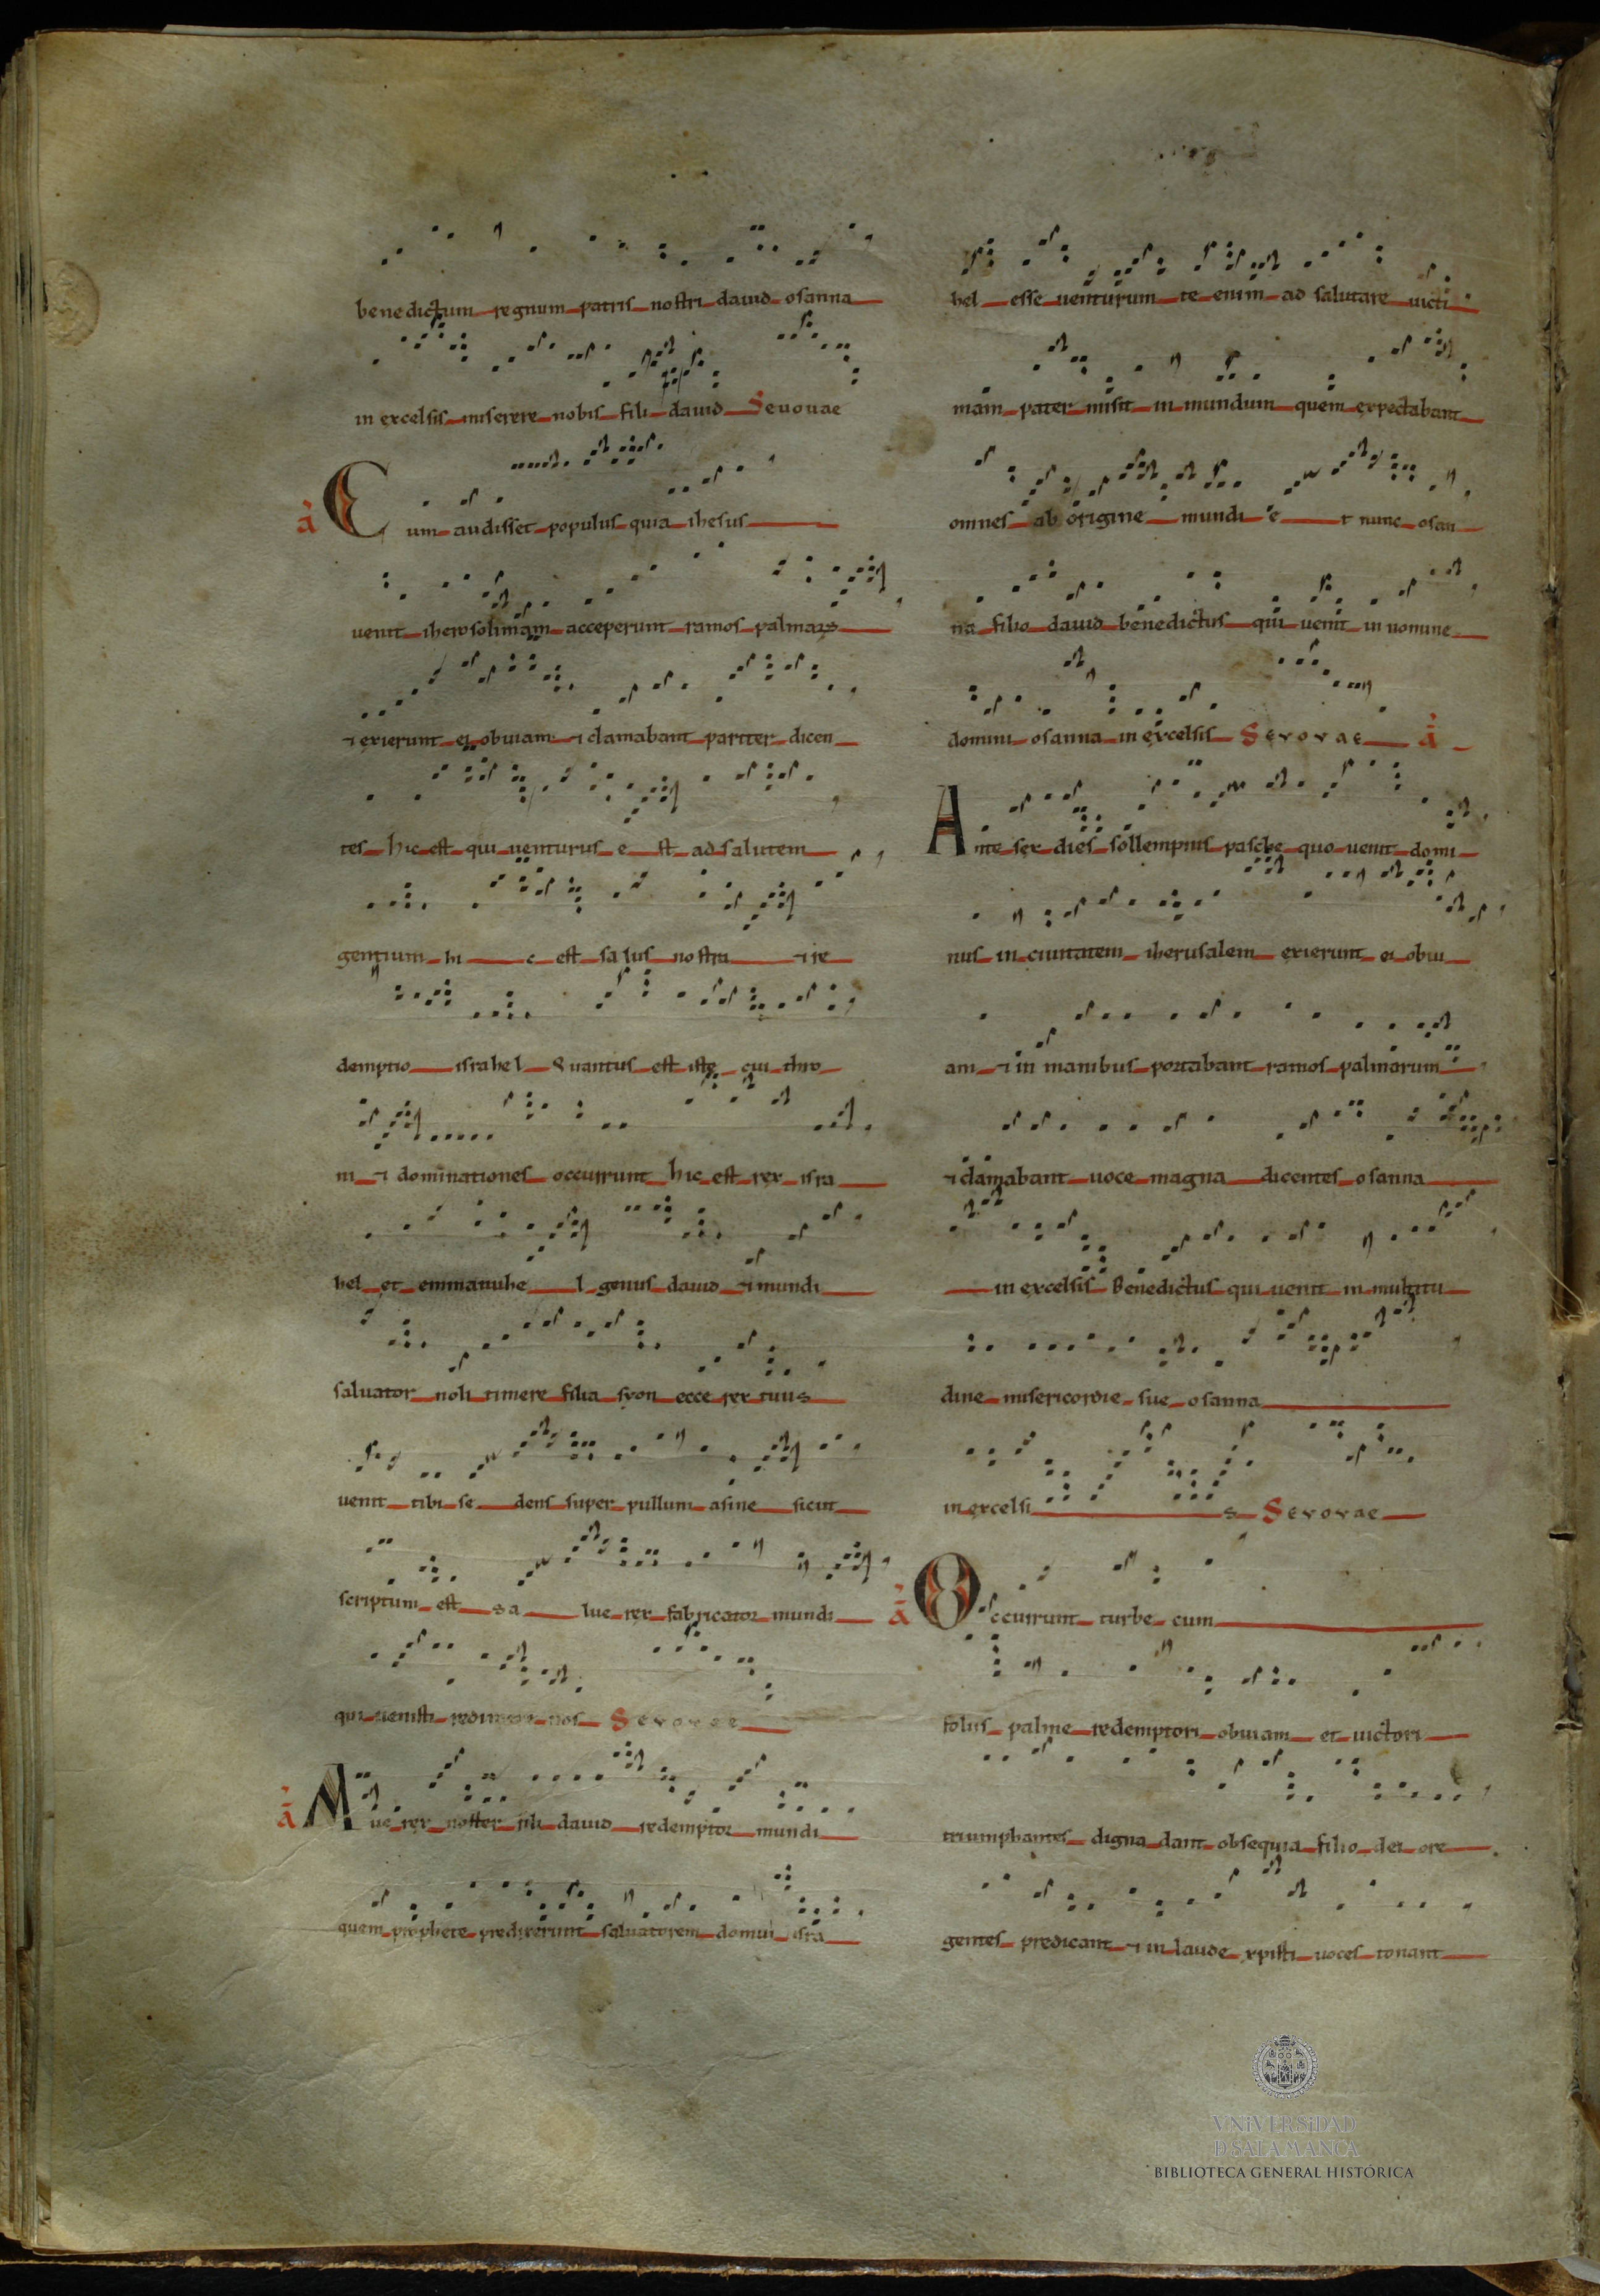 benedictum regnum patris nostri dauid osanna
in excelsis miserere nobis fili dauid Seuouae
a Cum audisset populus quia ihesus
uenit iherosolimam acceperunt ramos palmaꝝ
⁊ exierunt ei obuiam ⁊ clamabant pariter dicen
tes hic est qui uenturus e st ad salutem
gentium hi c est salus nostra ⁊ re
demptio israhel Quantus est iste cui thro
ni ⁊ dominationes occurrunt hic est rex isra
hel et emmanuhe l genus dauid ⁊ mundi
saluator noli timere filia syon ecce rex tuus
uenit tibi se dens super pullum asine sicut
scriptum est sa lue rex fabricator mundi
qui uenisti redimere nos Seuouae
a Aue rex noster fili dauid redemptor mundi
quem prophete predixerunt saluatorem domui isra
hel esse uenturum te enim ad salutare uicti
mam pater misit in mundum quem expectabant
omnes ab origine mundi e t nunc osan
na filio dauid benedictus qui uenit in nomine
domini osanna in excelsis Seuouae a
Ante sex dies sollempnis pasche quo uenit domi
nus in ciuitatem iherusalem exierunt ei obui
am ⁊ in manibus portabant ramos palmarum
⁊ clamabant uoce magna dicentes osanna
in excelsis Benedictus qui uenit in multitu
dine misericordie sue osanna
in excelsi s Seuouae
a Occurrunt turbe cum
folus palme redemptori obuiam et uictori
triumphantes digna dant obsequia filio dei ore
gentes predicant ⁊ in laude xpisti uoces tonant
VNiVERSiDAD
D SALAMANCA
BIBLIOTECA GENERAL HISTÓRICA